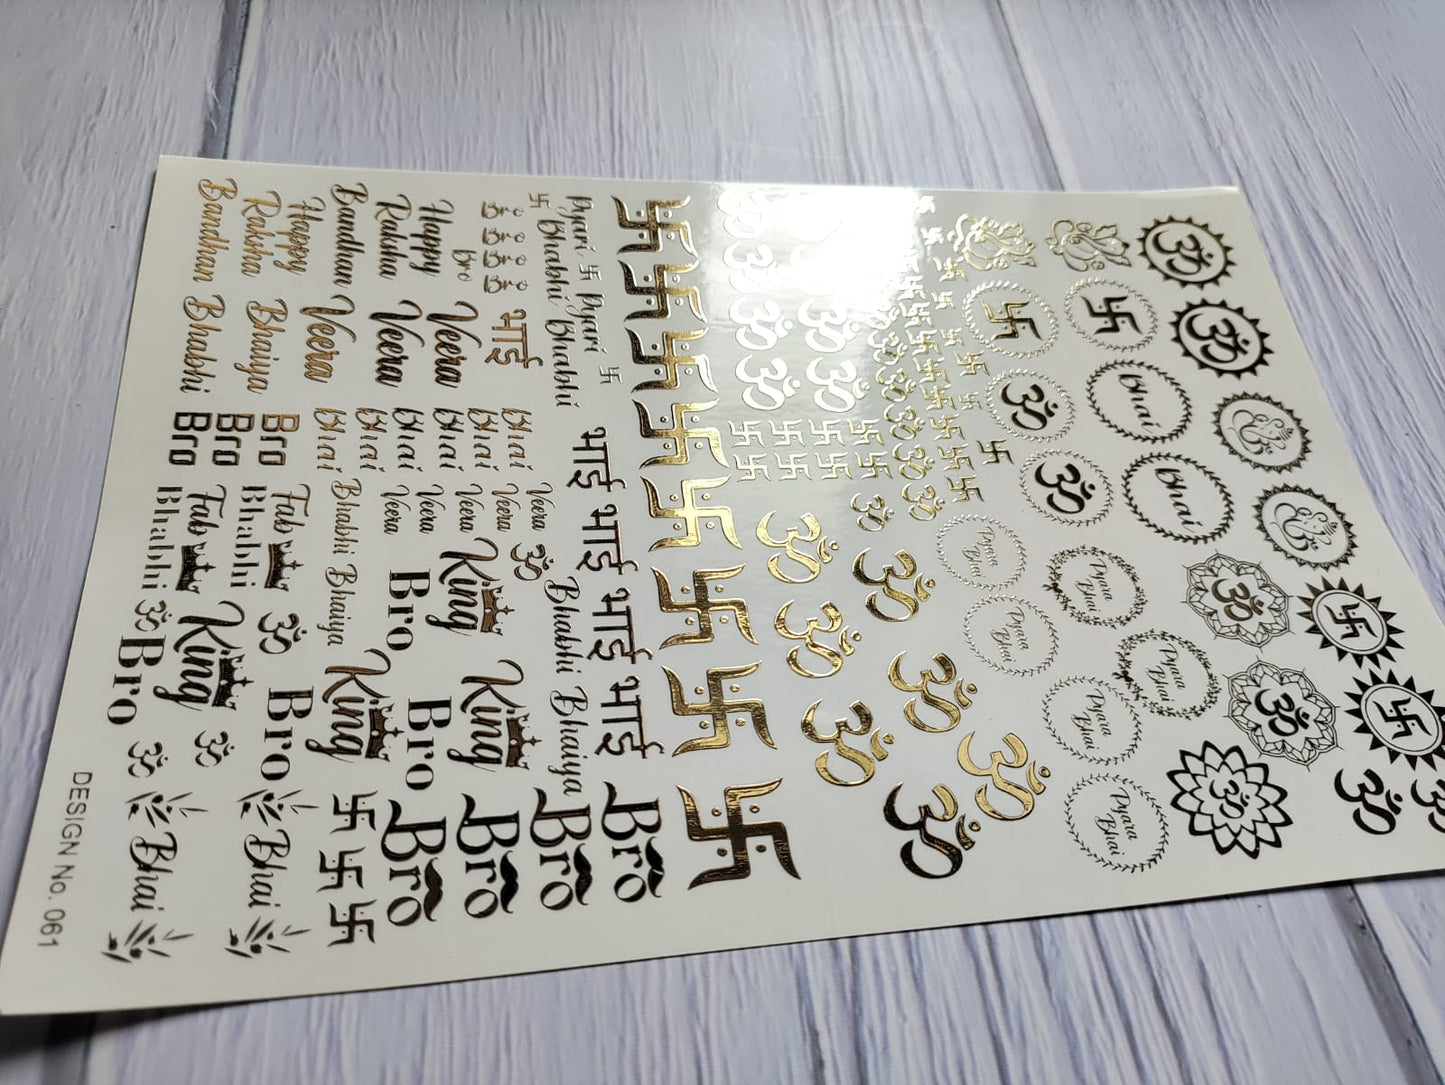 bhai
bhai
Pyara
Bhai
Pyara
Bhai
Pyara
Bhai
Pyara
Bhai
Pyara
Bhai
Pyara
Bhai
Pyari
Bhabhi
Pyari
Bhabhi
भाई
भाई
भाई
भाई
Bhabhi Bhaiya
Bro
Bro
Bro
Bro
Bro
Bro
Bro
bro
भाई
Happy
Raksha
Bandhan
Veera
Veera
Bhai
Bhai
Bhai
Bhai
Bhai
Bhai
Veera
Veera
Veera
Veera
Veera
King
Bro
King
Bro
Happy
Raksha
Bandhan
Veera
Bhaiya
Bhabhi
Bro
Bro
Bro
Bhabhi Bhaiya
Fab
Bhabhi
Fab
Bhabhi
King
Bro
King
Bro
Bhai
Bhai
DESIGN No. 061